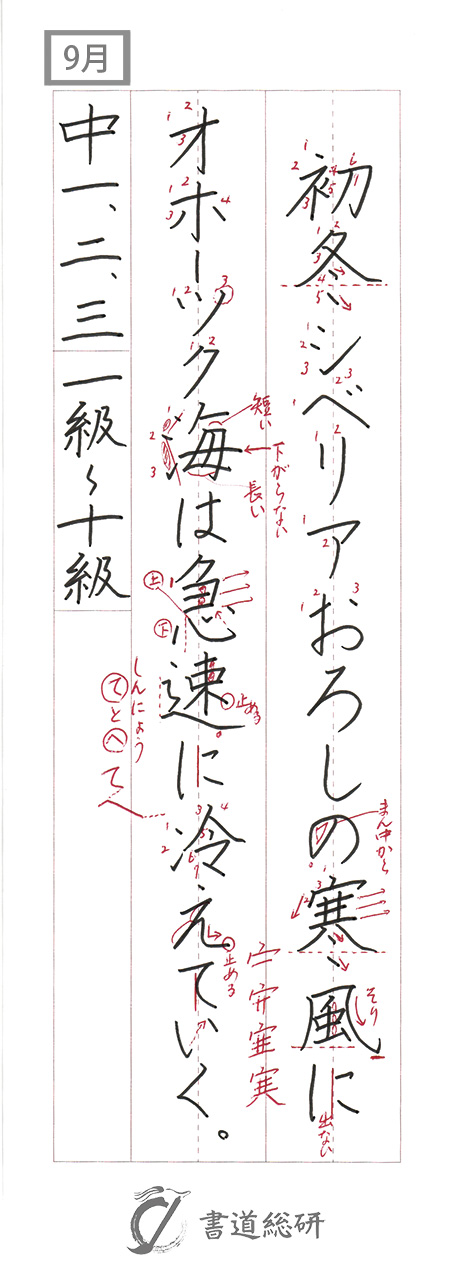 9月
初冬、シベリアおろしの寒、風に
オホーツク海は急速に冷えていく。
中一、二、三 一級〜十級
短い
下がらない
長い
上
下
止める
しんにょう
てとへ
てへ
止める
まん中から
そり
出ない
書道総研